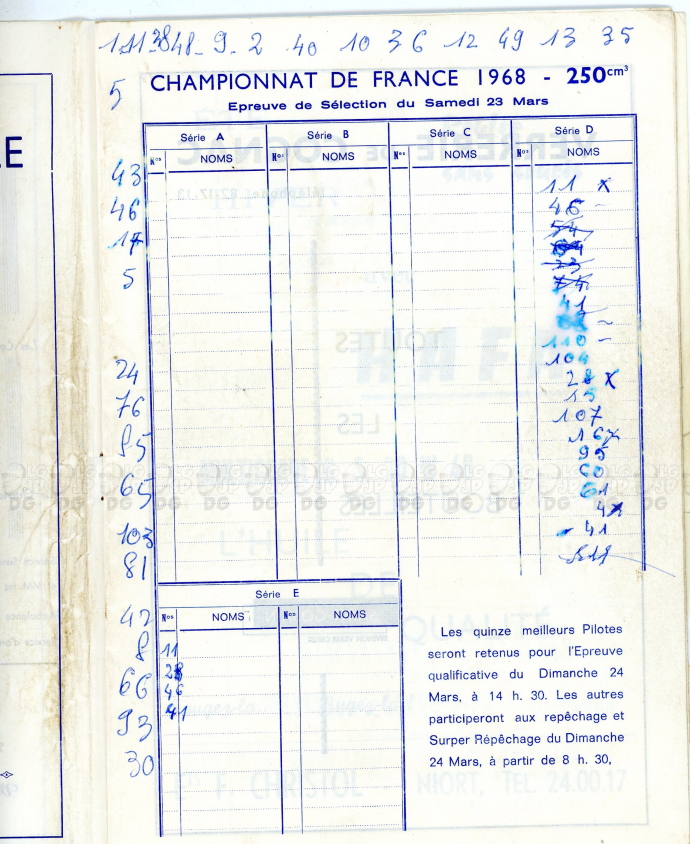 48 - 9 - 2 40 10 36 12 49 13 35
5
CHAMPIONNAT DE FRANCE 1968 - 250cm³
Epreuve de Sélection du Samedi 23 Mars
Série A Série B Série C Série D
Nos NOMS Nos NOMS Nos NOMS Nos NOMS
43
46
17
5
24
76
85
65
103
81
42
8
66
93
30
11 x
46 -
41
110 -
104
28 x
15
107
16 x
95
60
61
41
Série E
Nos NOMS Nos NOMS
11
28
46
41
Les quinze meilleurs Pilotes
seront retenus pour l'Epreuve
qualificative du Dimanche 24
Mars, à 14 h. 30. Les autres
participeront aux repêchage et
Surper Répêchage du Dimanche
24 Mars, à partir de 8 h. 30,
LE
DG DG DG DG DG DG DG DG DG DG DG